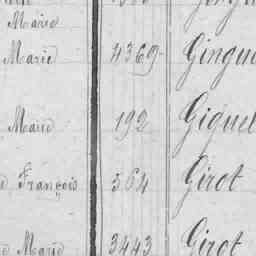 Marie
Marie 4369 Gingue
Marie 192 Giguel
François 564 Girot
Marie 3443 Girot